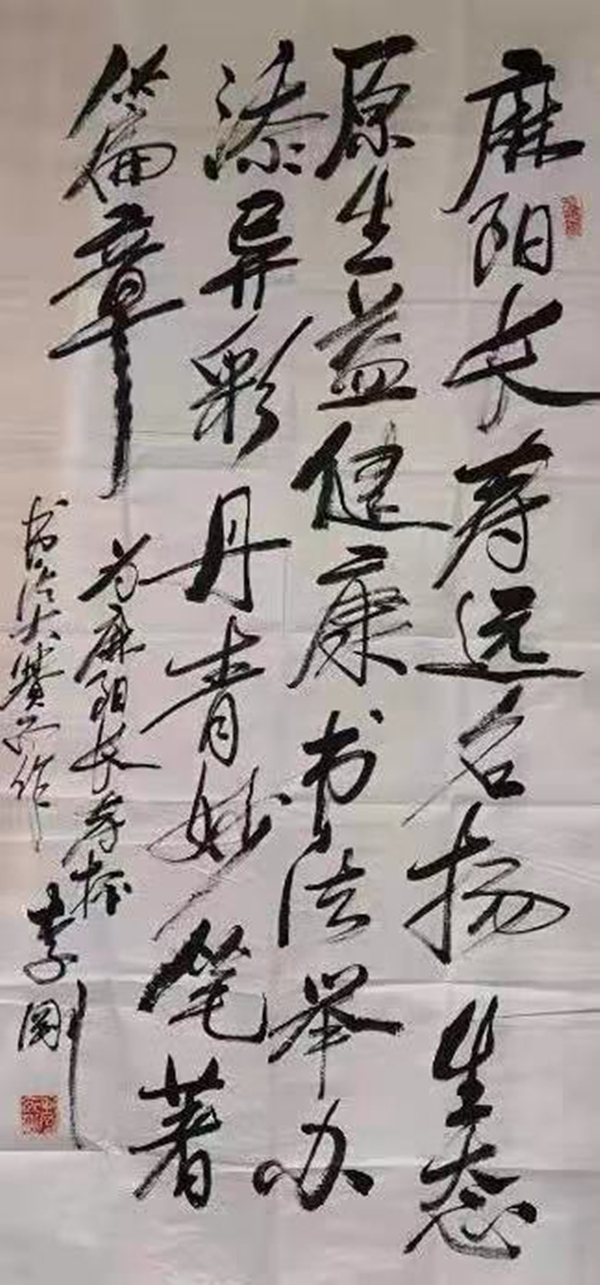 麻阳长寿远名扬生态
原生益健康书法举办
添异彩丹青妙笔著
篇章
为麻阳长寿杯
书法大赛而作
李刚